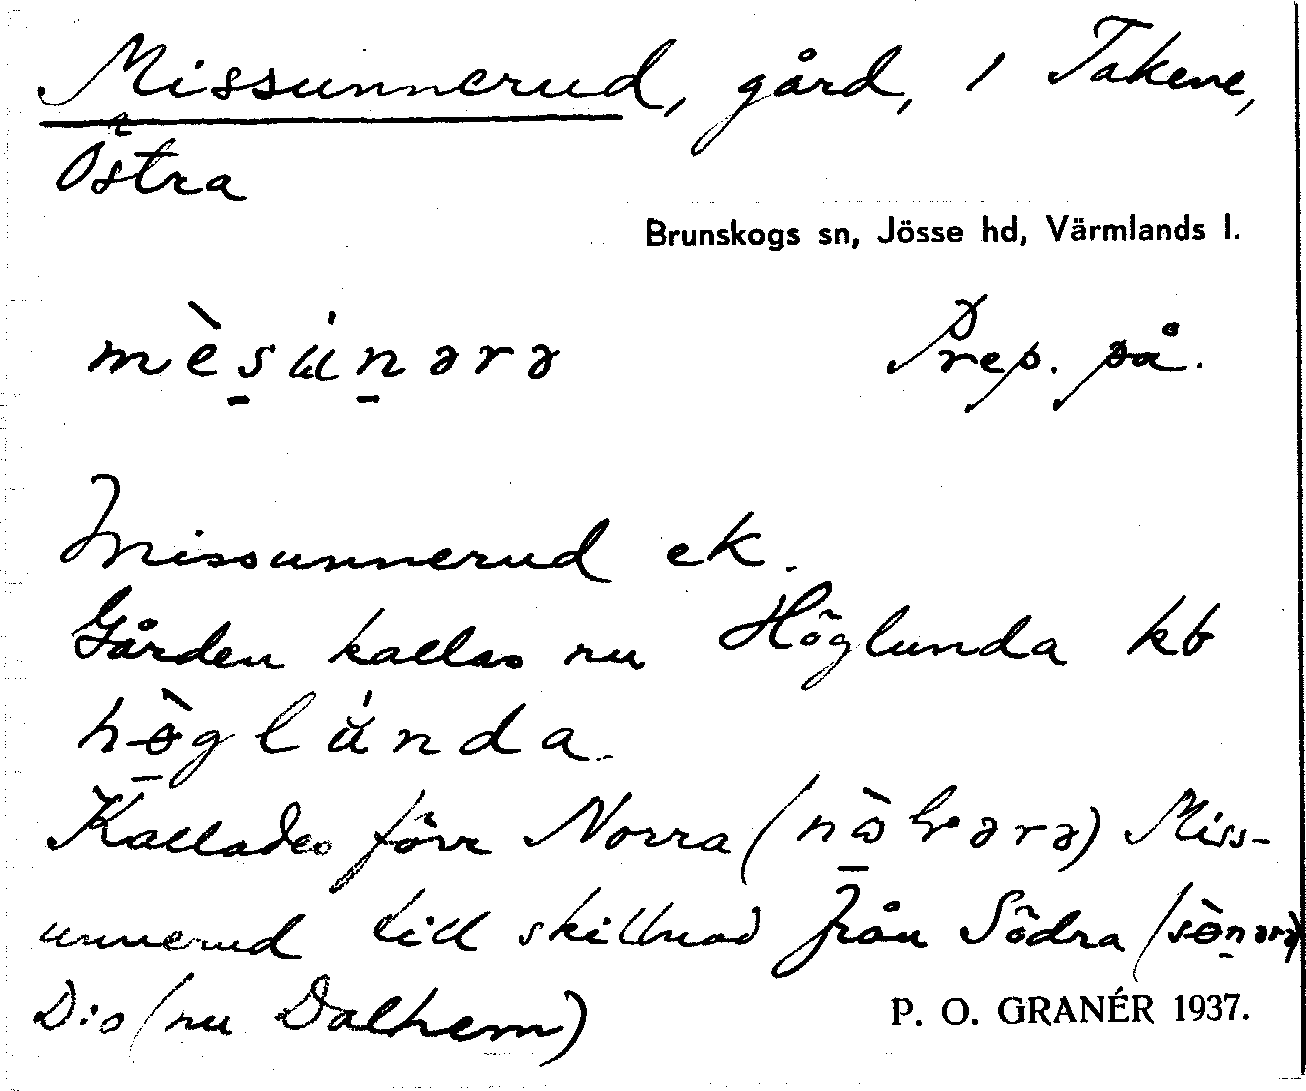 Missunnerud, gård, 1 Takene,
Östra
Brunskogs sn, Jösse hd, Värmlands l.
mèsúnərə Prep. på.
Missunnerud ek.
Gården kallas nu Höglunda kb
hö̀glúnda.
Kallades förr Norra ( Miss-
unnerud till skillnad från Södra (
D:o (nu Dalhem)
P. O. GRANÉR 1937.